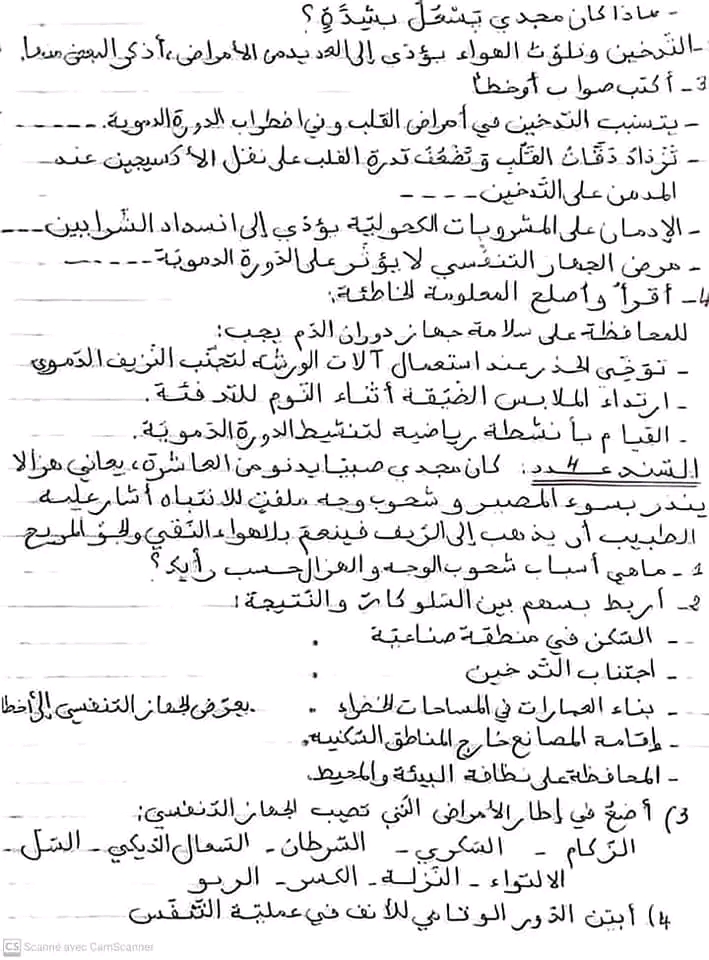 - لماذا كان مجدي يَسْعُلُ بِشِدَّةٍ ؟
-التّدخين وتلوّث الهواء يؤدّي إلى العديد من الأمراض، أذكر البعض منها.
3- أكتب صواب أو خطأ
- يتسبب التدخين في أمراض القلب وفي اضطراب الدورة الدموية. -----
- تَزْدَادُ دَقَّاتُ القَلْبِ وَتَضْعُفُ قدرة القلب على نقل الأكسيجين عند
المدمن على التّدخين ----
- الإدمان على المشروبات الكحوليّة يؤدّي إلى انسداد الشّرايين ---
- مرض الجهاز التنفّسي لا يؤثّر على الدّورة الدمويّة -----
4- أقرأ وأصلح المعلومة الخاطئة:
للمحافظة على سلامة جهاز دوران الدّم يجب:
- توخّي الحذر عند استعمال آلات الورشة لتجنّب النّزيف الدّموي
- ارتداء الملابس الضّيّقة أثناء النّوم للتّدفئة.
- القيام بأنشطة رياضية لتنشيط الدورة الدّمويّة.
السّند عـ4ـدد: كان مجدي صبيّا يدنو من العاشرة، يعاني هزالا
ينذر بسوء المصير وشحوب وجه ملفت للانتباه أشار عليه
الطبيب أن يذهب إلى الرّيف فينعم بالهواء النّقي والجوّ المريح
1- ماهي أسباب شحوب الوجه والهزال حسب رأيك؟
2- أربط بسهم بين السّلوكات والنّتيجة:
- السّكن في منطقة صناعيّة .
- اجتناب التّدخين .
- بناء العمارات في المساحات الخضراء . .يعرّض الجهاز التّنفّسي إلى الأخطا
- إقامة المصانع خارج المناطق السّكنية.
- المحافظة على نظافة البيئة والمحيط.
3) أضع في إطار الأمراض الّتي تصيب الجهاز التّنفّسي:
الزّكام - السّكري - السّرطان - السّعال الدّيكي - السّل -
الالتواء - النّزلة - الكسر - الربو
4) أبيّن الدّور الوقائي للأنف في عمليّة التّنفّس
CS Scanné avec CamScanner